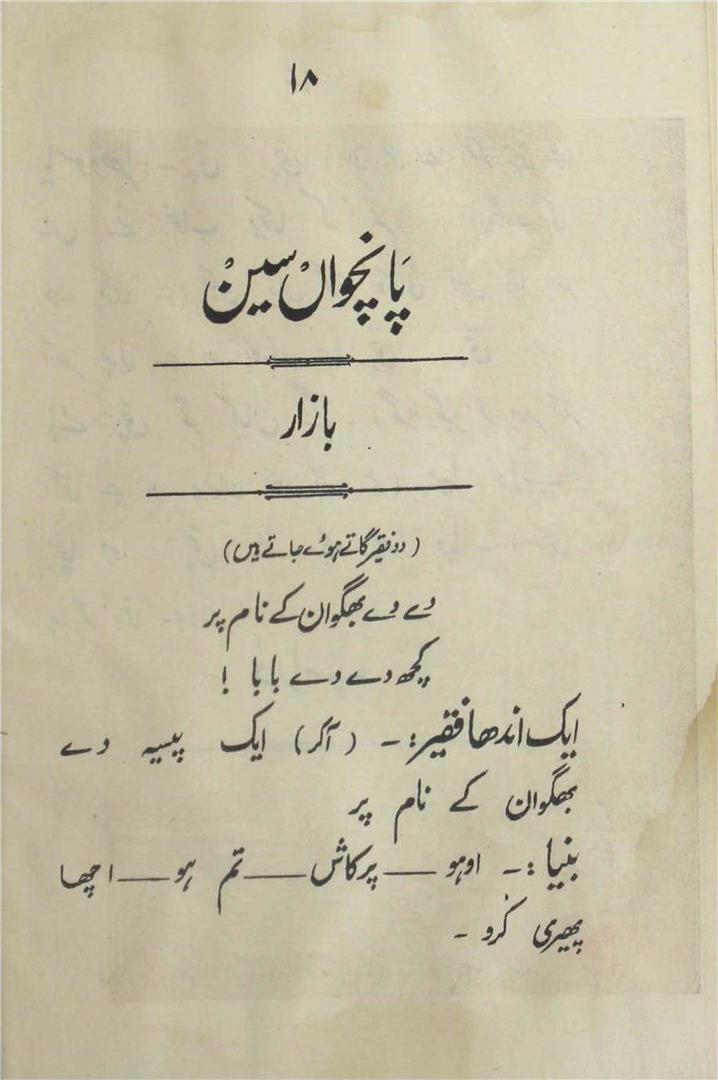 ۱۸
پانچواں سین
بازار
(دو فقیر گاتے ہوئے جاتے ہیں)
دے دے بھگوان کے نام پر
کچھ دے دے بابا !
ایک اندھا فقیر:۔ (آکر) ایک پیسہ دے
بھگوان کے نام پر
بنیا:۔ اوہو — پرکاش — تم ہو — اچھا
پھیری کرو ۔